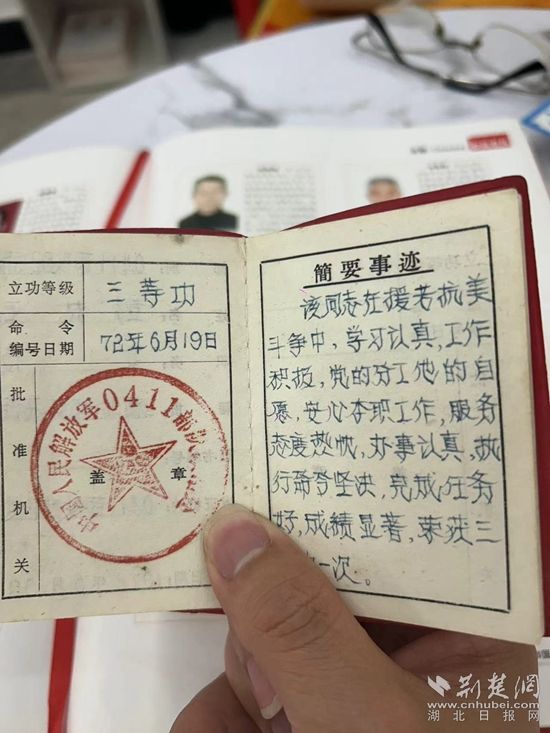 立功等级 三等功
命令
编号日期 72年6月19日
批准机关
中国人民解放军0411部队
盖章
簡要事迹
该同志在援老抗美
斗争中，学习认真，工作
积极，党的分工他的自
愿，安心本职工作，服务
态度热忱，办事认真，执
行命令坚决，完成任务
好，成绩显著，荣获三
一次。
荆楚网
www.cnhubei.com
湖北日报网